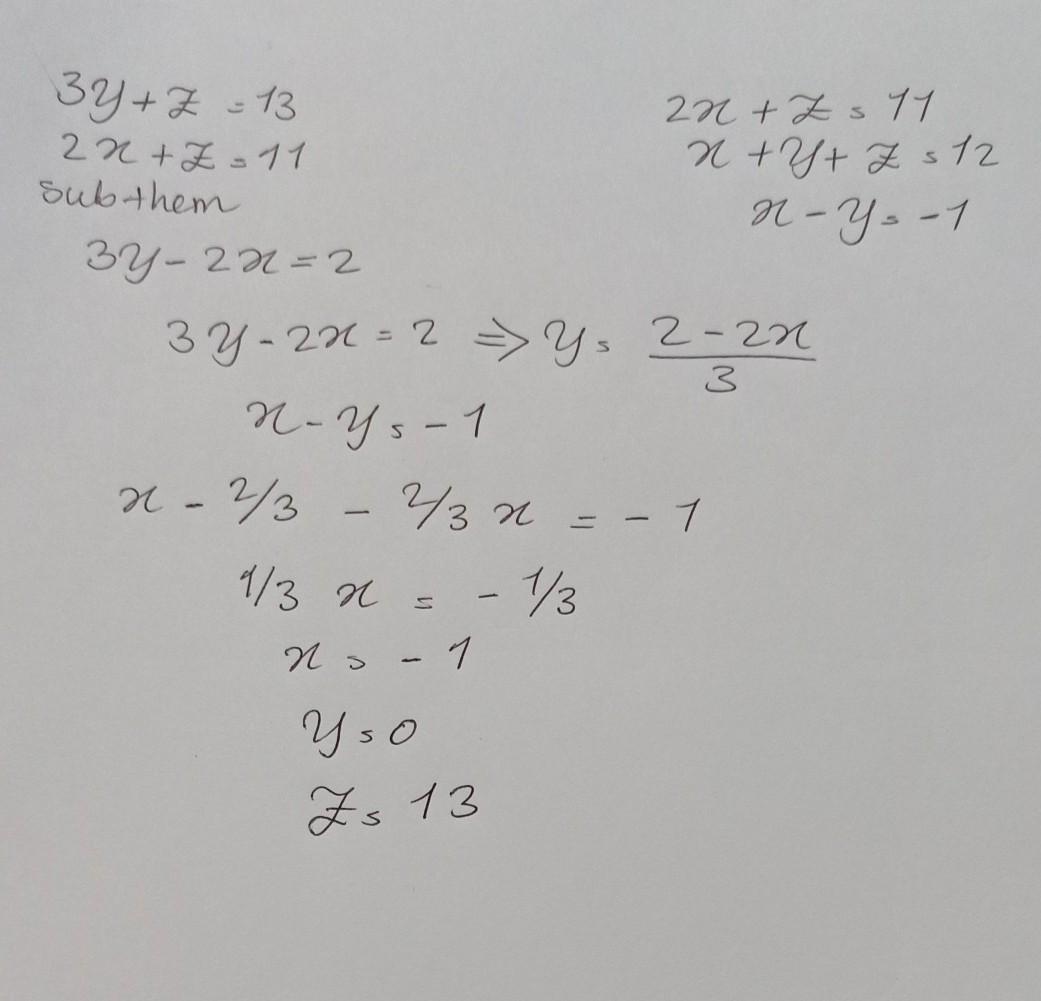 3y + z = 13
2x + z = 11
sub them
3y - 2x = 2
2x + z = 11
x + y + z = 12
x - y = -1
3y - 2x = 2 ⇒ y = (2 - 2x)/3
x - y = -1
x - 2/3 - 2/3 x = -1
1/3 x = - 1/3
x = -1
y = 0
z = 13